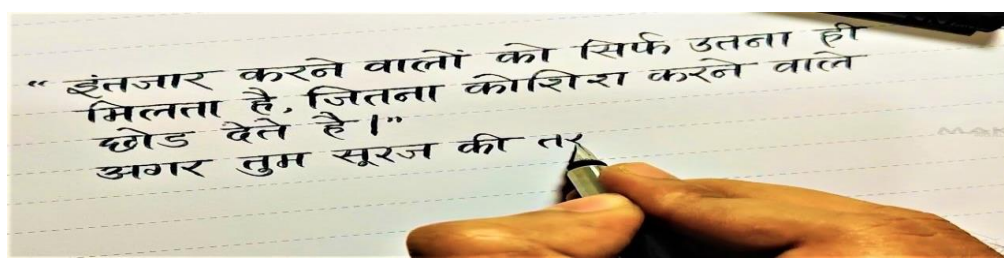 “ इंतजार करने वालों को सिर्फ उतना ही
मिलता है, जितना कोशिश करने वाले
छोड देते है ।”
अगर तुम सूरज की तर